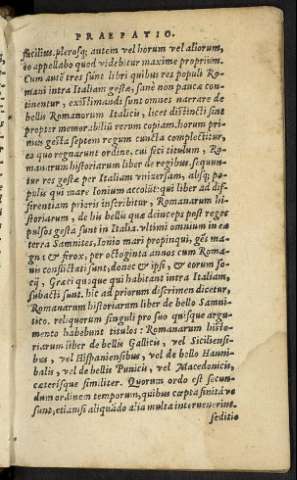 PRAEFATIO.
facilius. plerosq; autem vel horum vel aliorum,
eo appellabo quod videbitur maxime proprium.
Cum autē tres sunt libri quibus res populi Ro-
mani intra Italiam gestæ, sanè non pauca con-
tinentur, existimandi sunt omnes narrare de
bellis Romanorum Italicis, licet distincti sint
propter memorabiliū rerum copiam. horum pri-
mus gesta septem regum cuncta complectitur,
ea quo regnarunt ordine. cui feci titulum, Ro-
manarum historiarum liber de regibus. sequun-
tur res gestæ per Italiam vniuersam, absq; po-
pulis qui mare Ionium accolūt: qui liber ad dif-
ferentiam prioris inscribitur, Romanarum hi-
storiarum, de his bellis quæ deinceps post reges
pulsos gesta sunt in Italia. vltimi omnium in ea
terra Samnites, Ionio mari propinqui, gēs ma-
gna & firox, per octoginta annos cum Roma-
nis conflictati sunt, donec & ipsi, & eorum so-
cij, Græci quoque qui habitant intra Italiam,
subacti sunt. hic ad priorum discrimen dicetur,
Romanarum historiarum liber de bello Samni-
tico. reliquorum singuli pro suo quisque argu-
mento habebunt titulos: Romanarum histo-
riarum liber de bellis Gallicis, vel Siciliensi-
bus, vel Hispaniensibus, vel de bello Hanni-
balis, vel de bellis Punicis, vel Macedonicis,
cæterisque similiter. Quorum ordo est secun-
dum ordinem temporum, quibus cœpta finitáve
sunt, etiamsi aliquādo alia multa interuenerint.
seditio